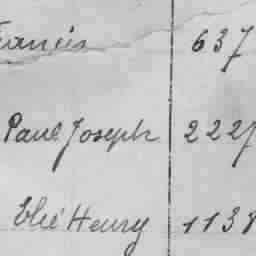 Francis 637
Paul Joseph 2227
Elie Henry 1138